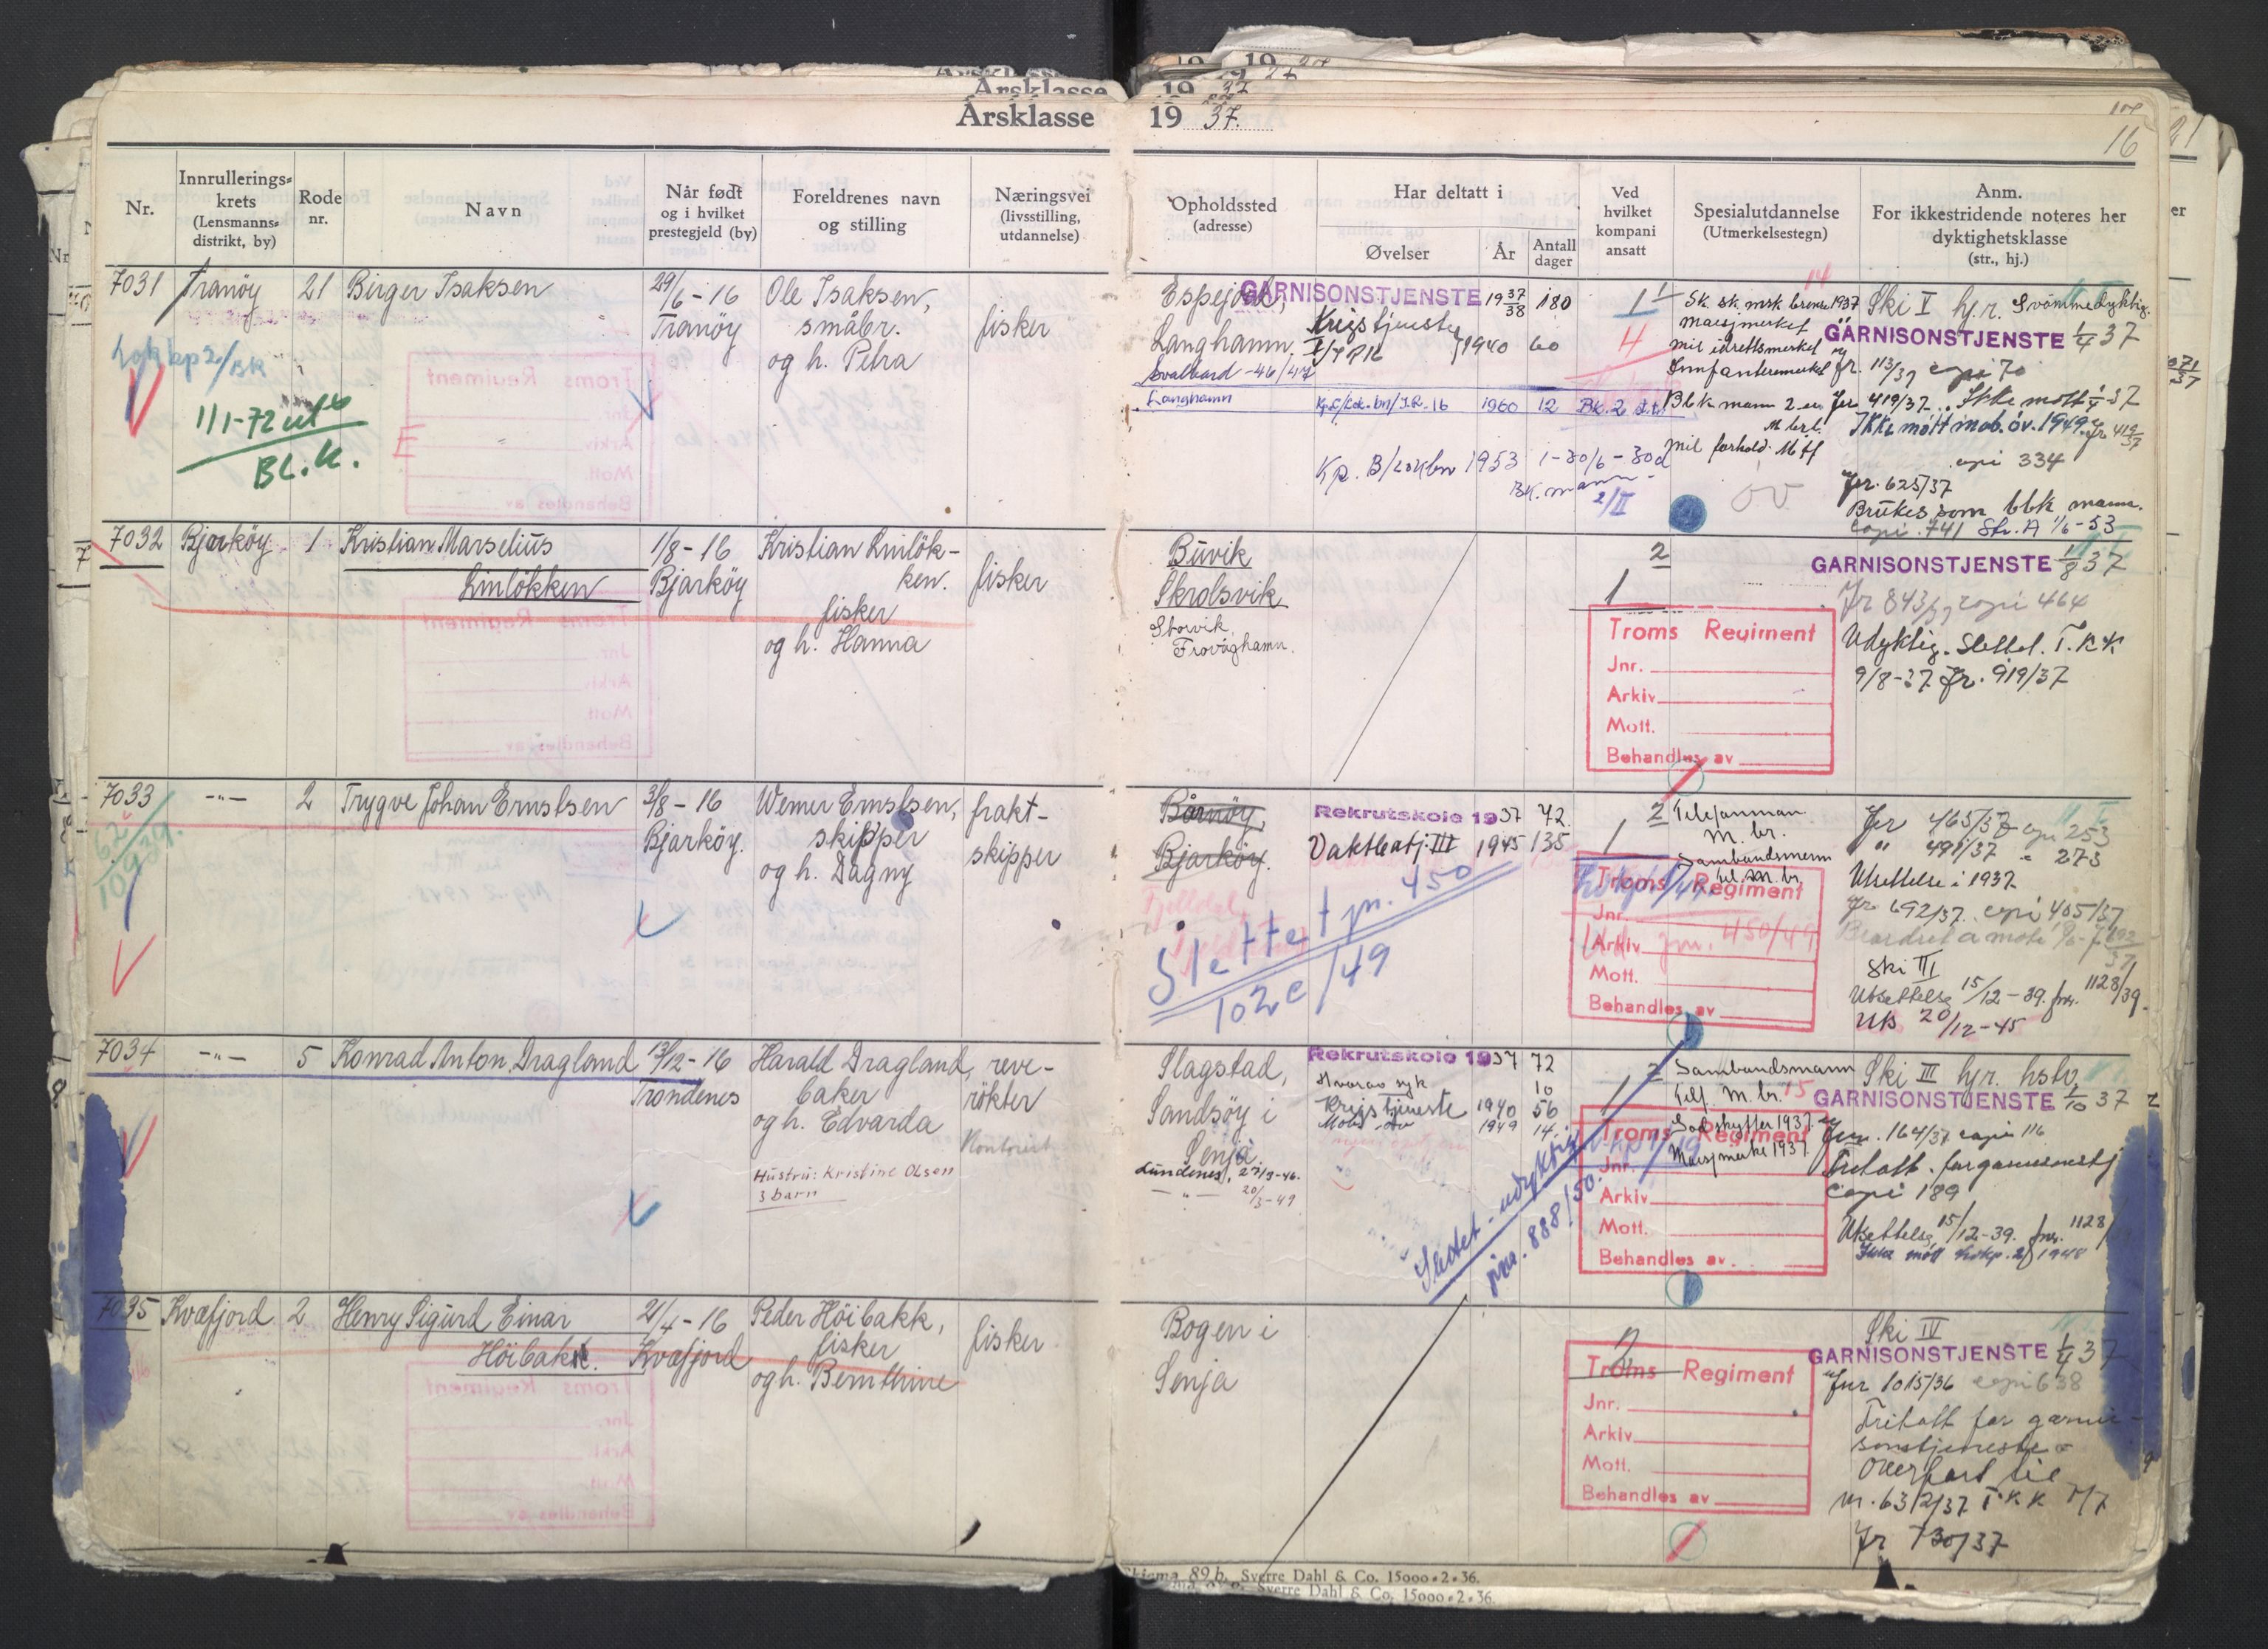 Årsklasse 1937.
16
Nr.
Innrullerings-
krets
(Lensmanns-
distrikt, by)
Rode
nr.
Navn
Når født
og i hvilket
prestegjeld (by)
Foreldrenes navn
og stilling
Næringsvei
(livsstilling,
utdannelse)
Opholdssted
(adresse)
Har deltatt i
Øvelser
År
Antall
dager
Ved
hvilket
kompani
ansatt
Spesialutdannelse
(Utmerkelsestegn)
Anm.
For ikkestridende noteres her
dyktighetsklasse
(str., hj.)
7031 Tranöy 21 Birger Isaksen
29/6-16
Tranöy
Ole Isaksen,
småbr.
og h. Petra
fisker
1/1-72 utb
BL.K.
Langhamn,
Svalbard -46/47
Langhamn
GARNISONSTJENSTE 19 37/38 180
Krigstjeneste
1940 60
1960 12 Bk. 2
Kp. B/ 1953 1-30/6 - 30d
Bk. mann
2/II
1
4
14
Marsjmerket
Mil idrettsmerket
Infanterimerket
Blk mann
mil forhold. Mff
Ski V hj.r. Svömmedyktig.
GARNISONSTJENSTE 1/4 37
Jr. 113/37 copi 70
Jr 419/37. Ikke mött 1/4-37
Ikke mött mob.öv. 1949. Jr 419/37
copi 334
Jr. 625/37
Brukes som blk mann.
copi 741 Str. A 1/6-53
7032 Bjarköy 1 Kristian Marselius
Linlökken
1/8-16
Bjarköy
Kristian Linlök-
ken.
fisker
og h. Hanna
fisker
Buvik
Skrolsvik
Storvik
Frovåghamn.
2
1
Troms Regiment
Jnr.
Arkiv
Mott.
Behandles av
GARNISONSTJENSTE 1/8 37
Jr 843/37 copi 464
Udyktig. Slettet. T.K.K
9/8-37. Jr. 919/37
7033 -"- 2 Trygve Johan Ernstsen
3/8-16
Bjarköy.
Werner Ernstsen,
skipper
og h. Dagny
frakt-
skipper
Bjarköy.
Slettet jnr. 450
102c/49
Rekrutskole 1937 72.
Vaktbatj. III 1945 135
2
1
Telefonmann
M. br.
Sambandsmenn
Troms Regiment
Jnr.
Arkiv
Mott.
Behandles av
jnr. 450/49
Jr 465/37 copi 253
" 491/37 - 273
Utsettelse i 1937
Jr 692/37. copi 405/37
Ski III
Utsettelse 15/12-39. jnr. 1128/39.
20/12-45
7034 -"- 5 Konrad Anton Dragland
13/12-16
Trondenes
Harald Dragland,
baker
og h. Edvarda
Hustru: Kristine Olsen
3 barn
reve-
rökter
Kontorist
Slagstad,
Sandsöy i
Senja.
Lundenes, 27/9-46.
-"- 20/3-49
Rekrutskole 1937 72
Hvorav syk 10
Krigstjeneste 1940 56
Mob. öv 1949 14.
Slettet - udyktig
jnr. 888/50.
2
1
Sambandsmann
Telf. M. br. 15
Godskytter 1937
Marsjmerke 1937
Troms Regiment
Jnr.
Arkiv
Mott.
Behandles av
Ski III hj.r. hstv.
GARNISONSTJENSTE 1/10 37
Jnr. 164/37 copi 116
Fritatt for garnisonstj
copi 189
Utsettelse 15/12-39. jnr. 1128/
1948
7035 Kvæfjord 2 Henry Sigurd Einar
Höibakk.
21/4-16
Kvæfjord
Peder Höibakk,
fisker
og h. Bernthine
fisker
Bogen i
Senja
2
Troms Regiment
Jnr.
Arkiv
Mott.
Behandles av
Ski IV
GARNISONSTJENSTE 1/4 37
Jnr 1015/36 copi 638
Fritatt for garni-
sonstjeneste
Overfört til
nr. 63/2/37 T.K.K
Jr 730/37
Skjema 89 b. Sverre Dahl & Co. 15000-2-36.
Sverre Dahl & Co. 15000-2-36.